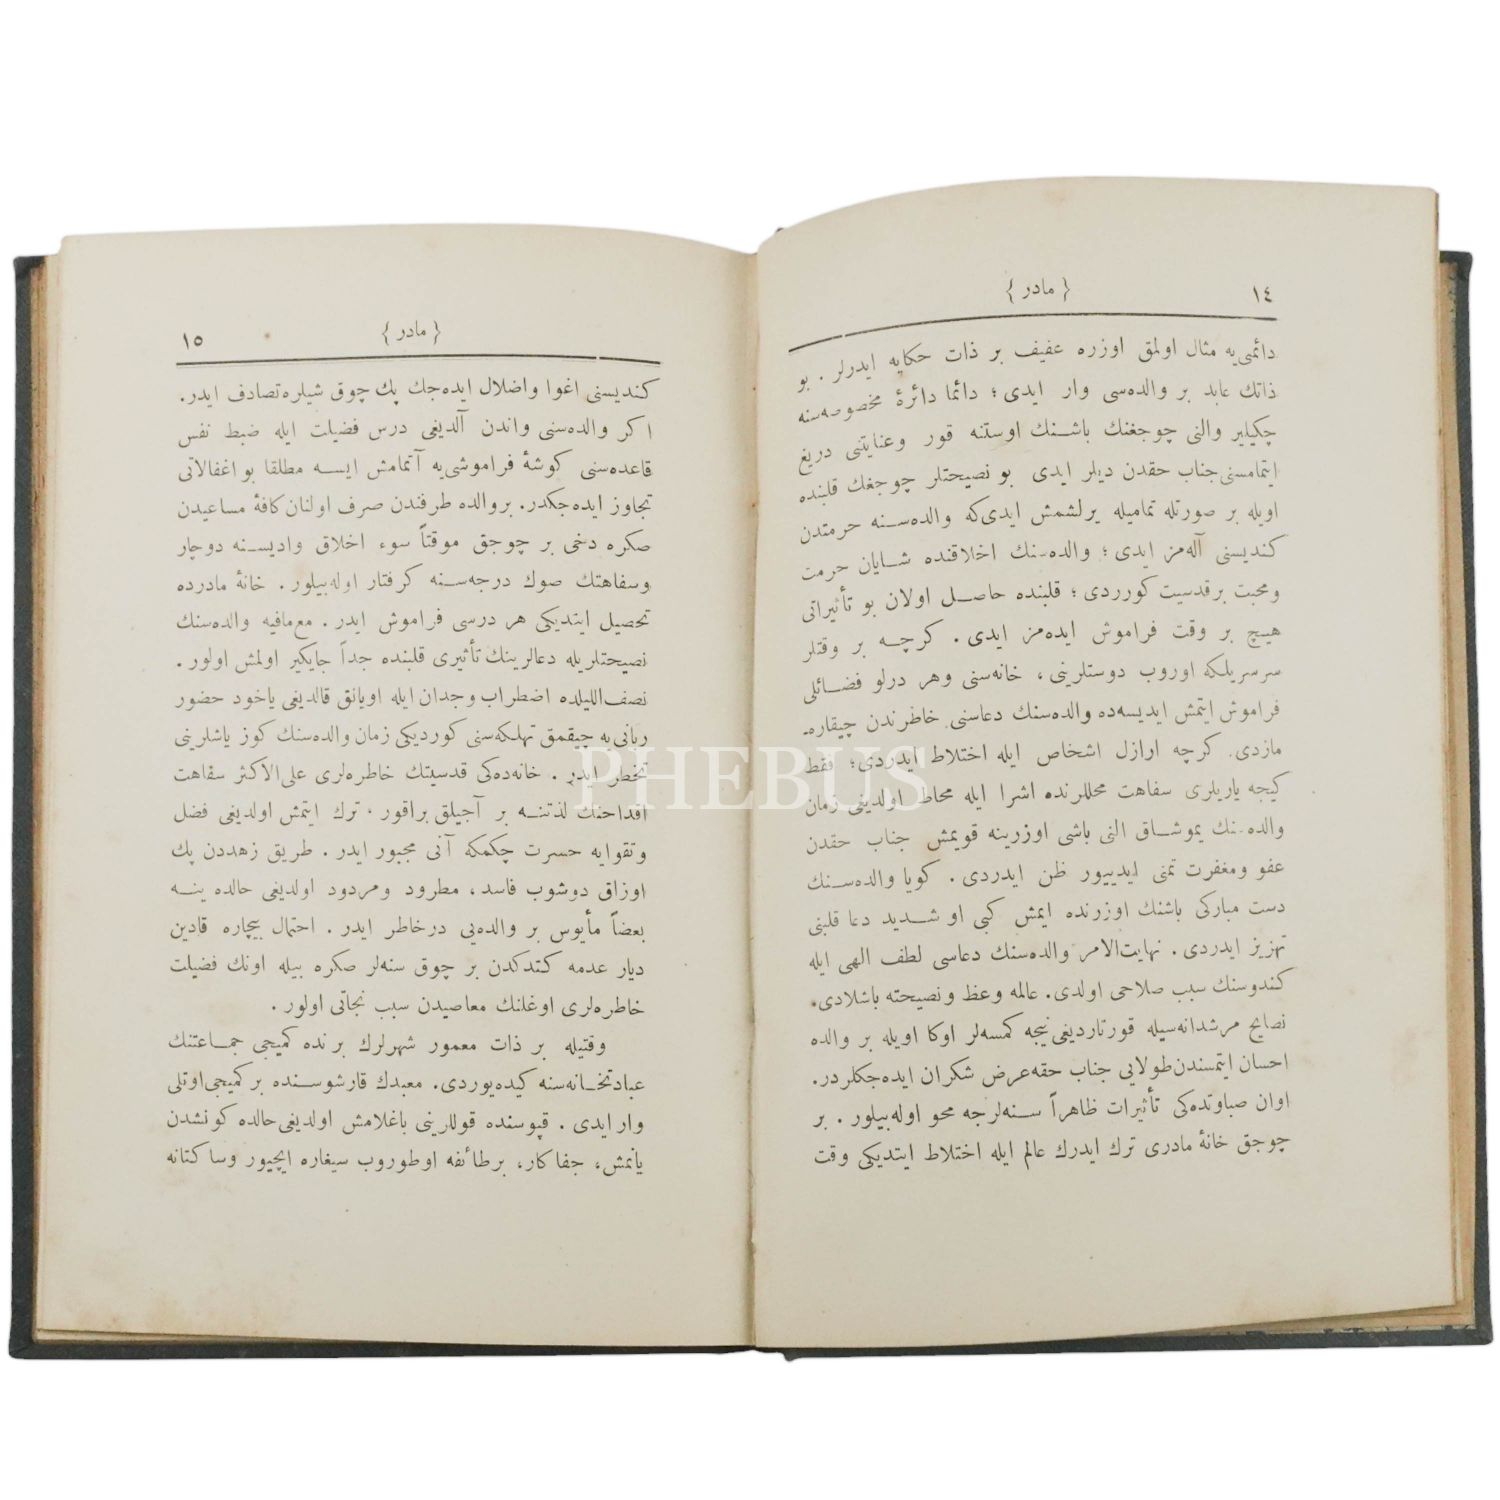 ١٤
{ مادر }
دائمی‌یه مثال اولمق اوزره عفیف بر ذات حكایه ایدرلر . بو
ذاتك عابد بر والده‌سی وار ایدی ؛ دائما دائرهٔ مخصوصه‌سنه
چكیلیر والنی چوجغنك باشنك اوستنه قور وعنایتنی دریغ
ایتمامسنی جناب حقدن دیلر ایدی بو نصیحتلر چوجغك قلبنده
اویله بر صورتله تمامیله یرلشمش ایدی‌كه والده‌سنه حرمتدن
كندیسنی آله‌مز ایدی ؛ والده‌سنك اخلاقنده شایان حرمت
ومحبت برقدسیت كوردی ؛ قلبنده حاصل اولان بو تأثیراتی
هیچ بر وقت فراموش ایده‌مز ایدی . كرچه بر وقتلر
سرسریلكه اوروب دوستلرینی ، خانه‌سنی وهر درلو فضائلی
فراموش ایتمش ایدیسه‌ده والده‌سنك دعاسنی خاطرندن چیقاره‌ـ
مازدی . كرچه ارازل اشخاص ایله اختلاط ایدردی ؛ فقط
كیجه یاریلری سفاهت محللرنده اشرا ایله محاط اولدیغی زمان
والده‌سنك یموشاق النی باشی اوزرینه قویمش جناب حقدن
عفو ومغفرت تمنی ایدییور ظن ایدردی . كویا والده‌سنك
دست مباركی باشنك اوزرنده ایمش كبی او شدید دعا قلبنی
تهزیز ایدردی . نهایت‌الامر والده‌سنك دعاسی لطف الهی ایله
كندوسنك سبب صلاحی اولدی . عالمه وعظ ونصیحته باشلادی .
نصایح مرشدانه‌سیله قورتاردیغی نیجه كمسه‌لر اوكا اویله بر والده
احسان ایتمسندن طولایی جناب حقه عرض شكران ایده‌جكلردر .
اوان صباوتده‌كی تأثیرات ظاهراً سنه‌لرجه محو اوله‌بیلور . بر
چوجق خانهٔ مادری ترك ایدرك عالم ایله اختلاط ایتدیكی وقت
{ مادر }
١٥
كندیسنی اغوا واضلال ایده‌جك پك چوق شیلره تصادف ایدر .
اكر والده‌سنی واندن آلدیغی درس فضیلت ایله ضبط نفس
قاعده‌سنی كوشهٔ فراموشی‌یه آتمامش ایسه مطلقا بو اغفالاتی
تجاوز ایده‌جكدر . بر والده طرفندن صرف اولنان كافهٔ مساعیدن
صكره دخی بر چوجق موقتاً سوء اخلاق وادیسنه دوچار
وسفاهتك صوك درجه‌سنه كرفتار اوله‌بیلور . خانهٔ مادرده
تحصیل ایتدیكی هر درسی فراموش ایدر . مع‌مافیه والده‌سنك
نصیحتلریله دعالرینك تأثیری قلبنده جداً جایكیر اولمش اولور .
نصف‌اللیلده اضطراب وجدان ایله اویانق قالدیغی یاخود حضور
ربانی‌یه چیقمق تهلكه‌سنی كوردیكی زمان والده‌سنك كوز یاشلرینی
تخطر ایدر . خانه‌ده‌كی قدسیتك خاطره‌لری علی‌الاكثر سفاهت
اقداحنك لذتنه بر آجیلق براقور ، ترك ایتمش اولدیغی فضل
وتقوایه حسرت چكمكه آنی مجبور ایدر . طریق زهددن پك
اوزاق دوشوب فاسد ، مطرود ومردود اولدیغی حالده ینه
بعضاً مأیوس بر والده‌یی درخاطر ایدر . احتمال بیچاره قادین
دیار عدمه كتدكدن بر چوق سنه‌لر صكره بیله اونك فضیلت
خاطره‌لری اوغلنك معاصیدن سبب نجاتی اولور .
وقتیله بر ذات معمور شهرلرك برنده كمیجی جماعتنك
عبادتخانه‌سنه كیده‌یوردی . معبدك قارشوسنده بر كمیجی اوتلی
وار ایدی . قپوسنده قوللرینی باغلامش اولدیغی حالده كونشدن
یانمش ، جفاكار ، بر طائفه اوطوروب سیغاره ایچیور وساكتانه
PHEBUS